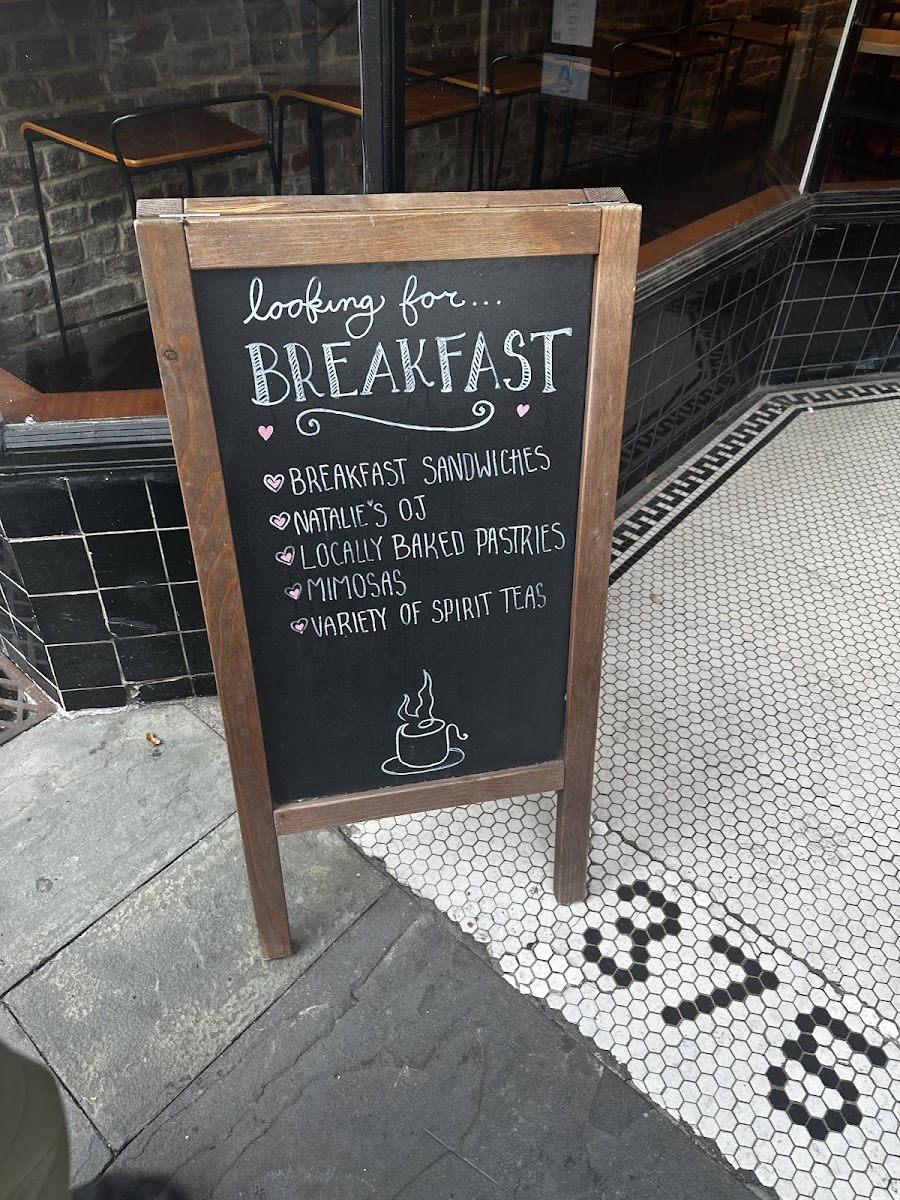 looking for...
BREAKFAST
BREAKFAST SANDWICHES
NATALIE'S OJ
LOCALLY BAKED PASTRIES
MIMOSAS
VARIETY OF SPIRIT TEAS
376